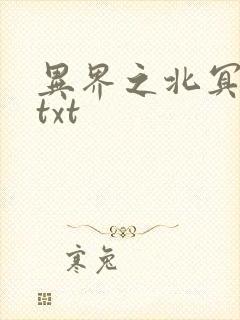 異界之北冥
txt
寒兔